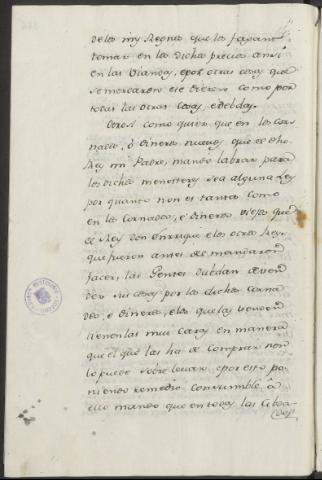 delos my Regnos que las fagan
tomar en los dichos precios ansi
en las Viandas, e por otras cosas que
se mercaren ese dicieren como por
todas las otras cosas, e debdas.
Otrosi como quier que en los Cor-
nados, o dineros nuevos que el dho.
Rey mi Padre, mando labrar para
los dichos menesteres sea alguna Ley
por quanto non es tanta como
en los Cornados, e dineros viejos que
el Rey Don Enrrique e los otros Reys.
que fueron antes de mandaron
facer, las Gentes dubdan de ven-
der sus cosas por los dichos Corna-
dos, e dineros, elos que las venden
tienenlas mui caras en manera
que el que las ha de comprar non
lo puede sobrellevar, e por esto po-
niendo remedio convenible, á
ello mando que en todas las Cibda-
des